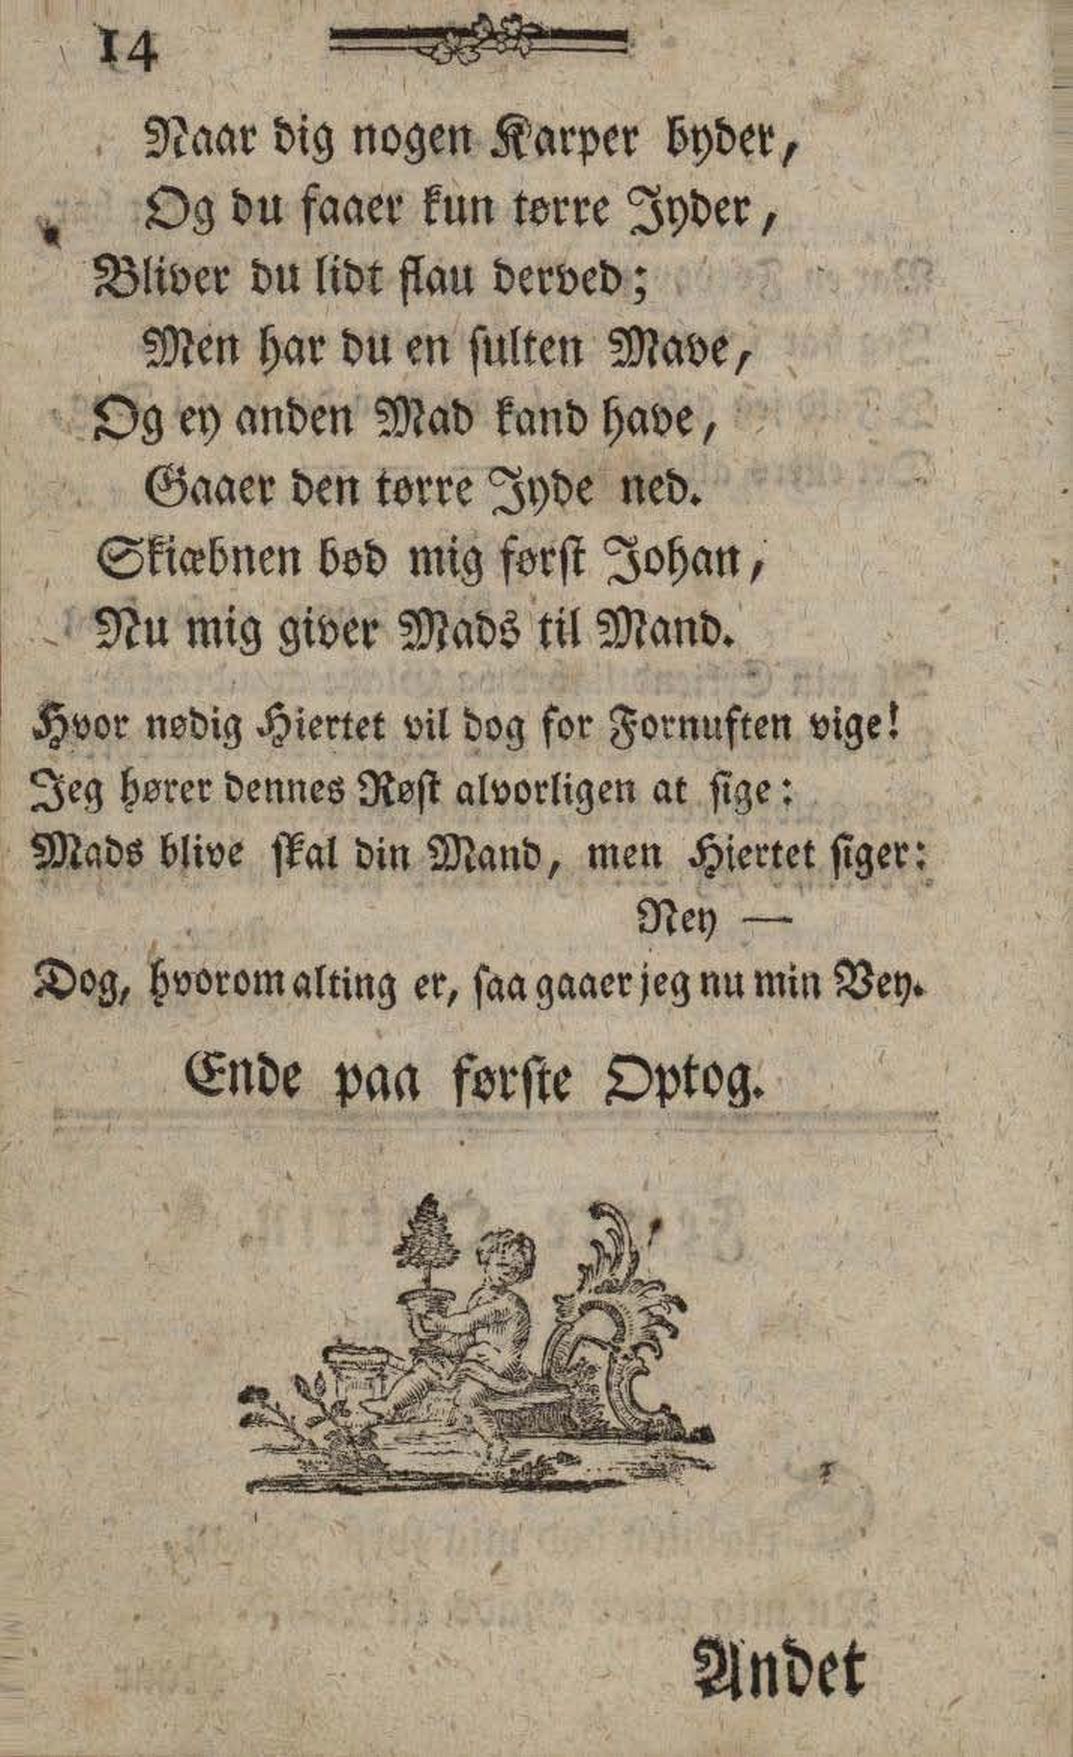 14
Naar dig nogen Karper byder,
Og du faaer kun tørre Jyder,
Bliver du lidt flau derved;
Men har du en sulten Mave,
Og ey anden Mad kand have,
Gaaer den tørre Jyde ned.
Skiæbnen bød mig først Johan,
Nu mig giver Mads til Mand.
Hvor nødig Hiertet vil dog for Fornuften vige!
Jeg hører dennes Røst alvorligen at sige:
Mads blive skal din Mand, men Hiertet siger:
Ney —
Dog, hvorom alting er, saa gaaer jeg nu min Vey.
Ende paa første Optog.
Andet